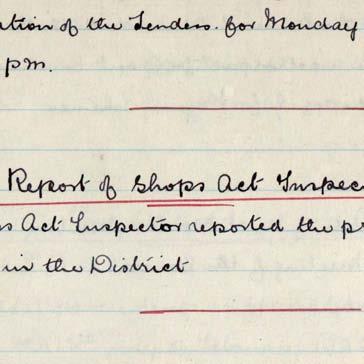 ation of the Tenders. for Monday
pm.
Report of Shops Act Inspec
s Act Inspector reported the pr
in the District